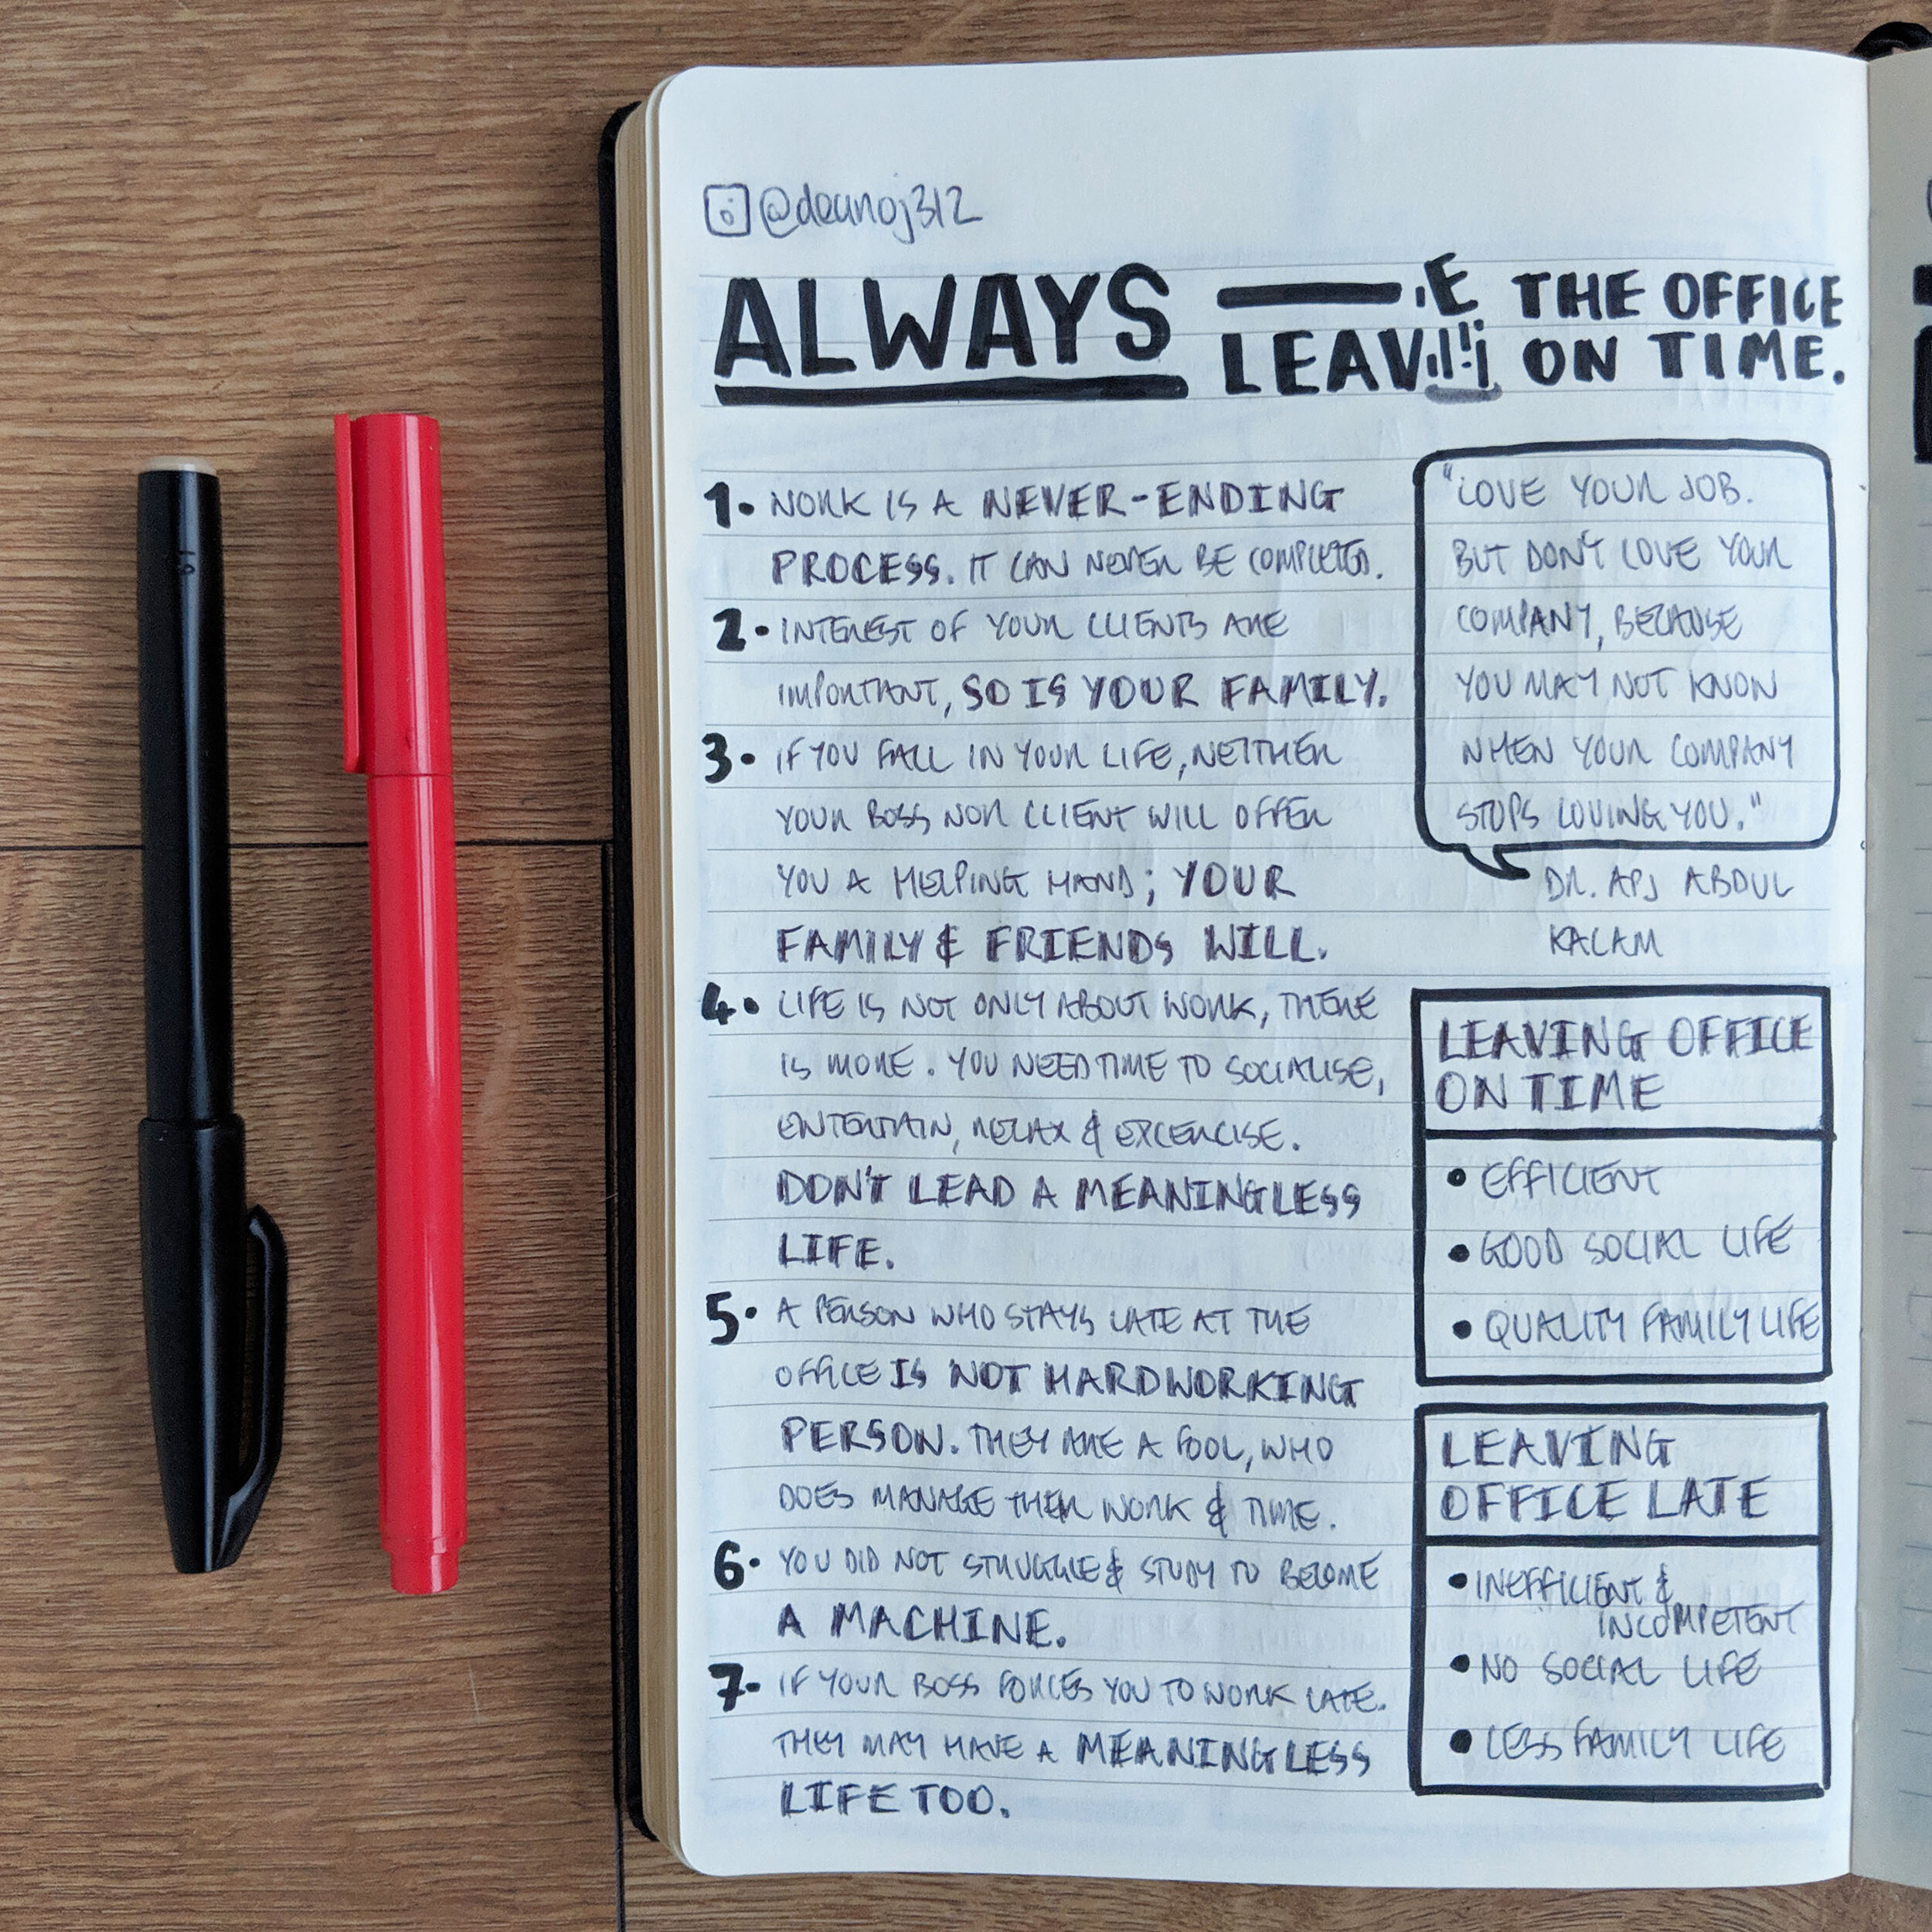 @deanoj312
ALWAYS LEAVE THE OFFICE
ON TIME.
1. WORK IS A NEVER-ENDING
PROCESS. IT CAN NEVER BE COMPLETED.
2. INTEREST OF YOUR CLIENTS ARE
IMPORTANT, SO IS YOUR FAMILY.
3. IF YOU FALL IN YOUR LIFE, NEITHER
YOUR BOSS NOR CLIENT WILL OFFER
YOU A HELPING HAND; YOUR
FAMILY & FRIENDS WILL.
4. LIFE IS NOT ONLY ABOUT WORK, THERE
IS MORE. YOU NEED TIME TO SOCIALISE,
ENTERTAIN, RELAX & EXCERCISE.
DON'T LEAD A MEANINGLESS
LIFE.
5. A PERSON WHO STAYS LATE AT THE
OFFICE IS NOT HARDWORKING
PERSON. THEY ARE A FOOL, WHO
DOES MANAGE THEIR WORK & TIME.
6. YOU DID NOT STRUGGLE & STUDY TO BECOME
A MACHINE.
7. IF YOUR BOSS FORCES YOU TO WORK LATE.
THEY MAY HAVE A MEANINGLESS
LIFE TOO.
"LOVE YOUR JOB.
BUT DON'T LOVE YOUR
COMPANY, BECAUSE
YOU MAY NOT KNOW
WHEN YOUR COMPANY
STOPS LOVING YOU."
DR. APJ ABDUL
KALAM
LEAVING OFFICE
ON TIME
• EFFICIENT
• GOOD SOCIAL LIFE
• QUALITY FAMILY LIFE
LEAVING
OFFICE LATE
• INEFFICIENT &
INCOMPETENT
• NO SOCIAL LIFE
• LESS FAMILY LIFE